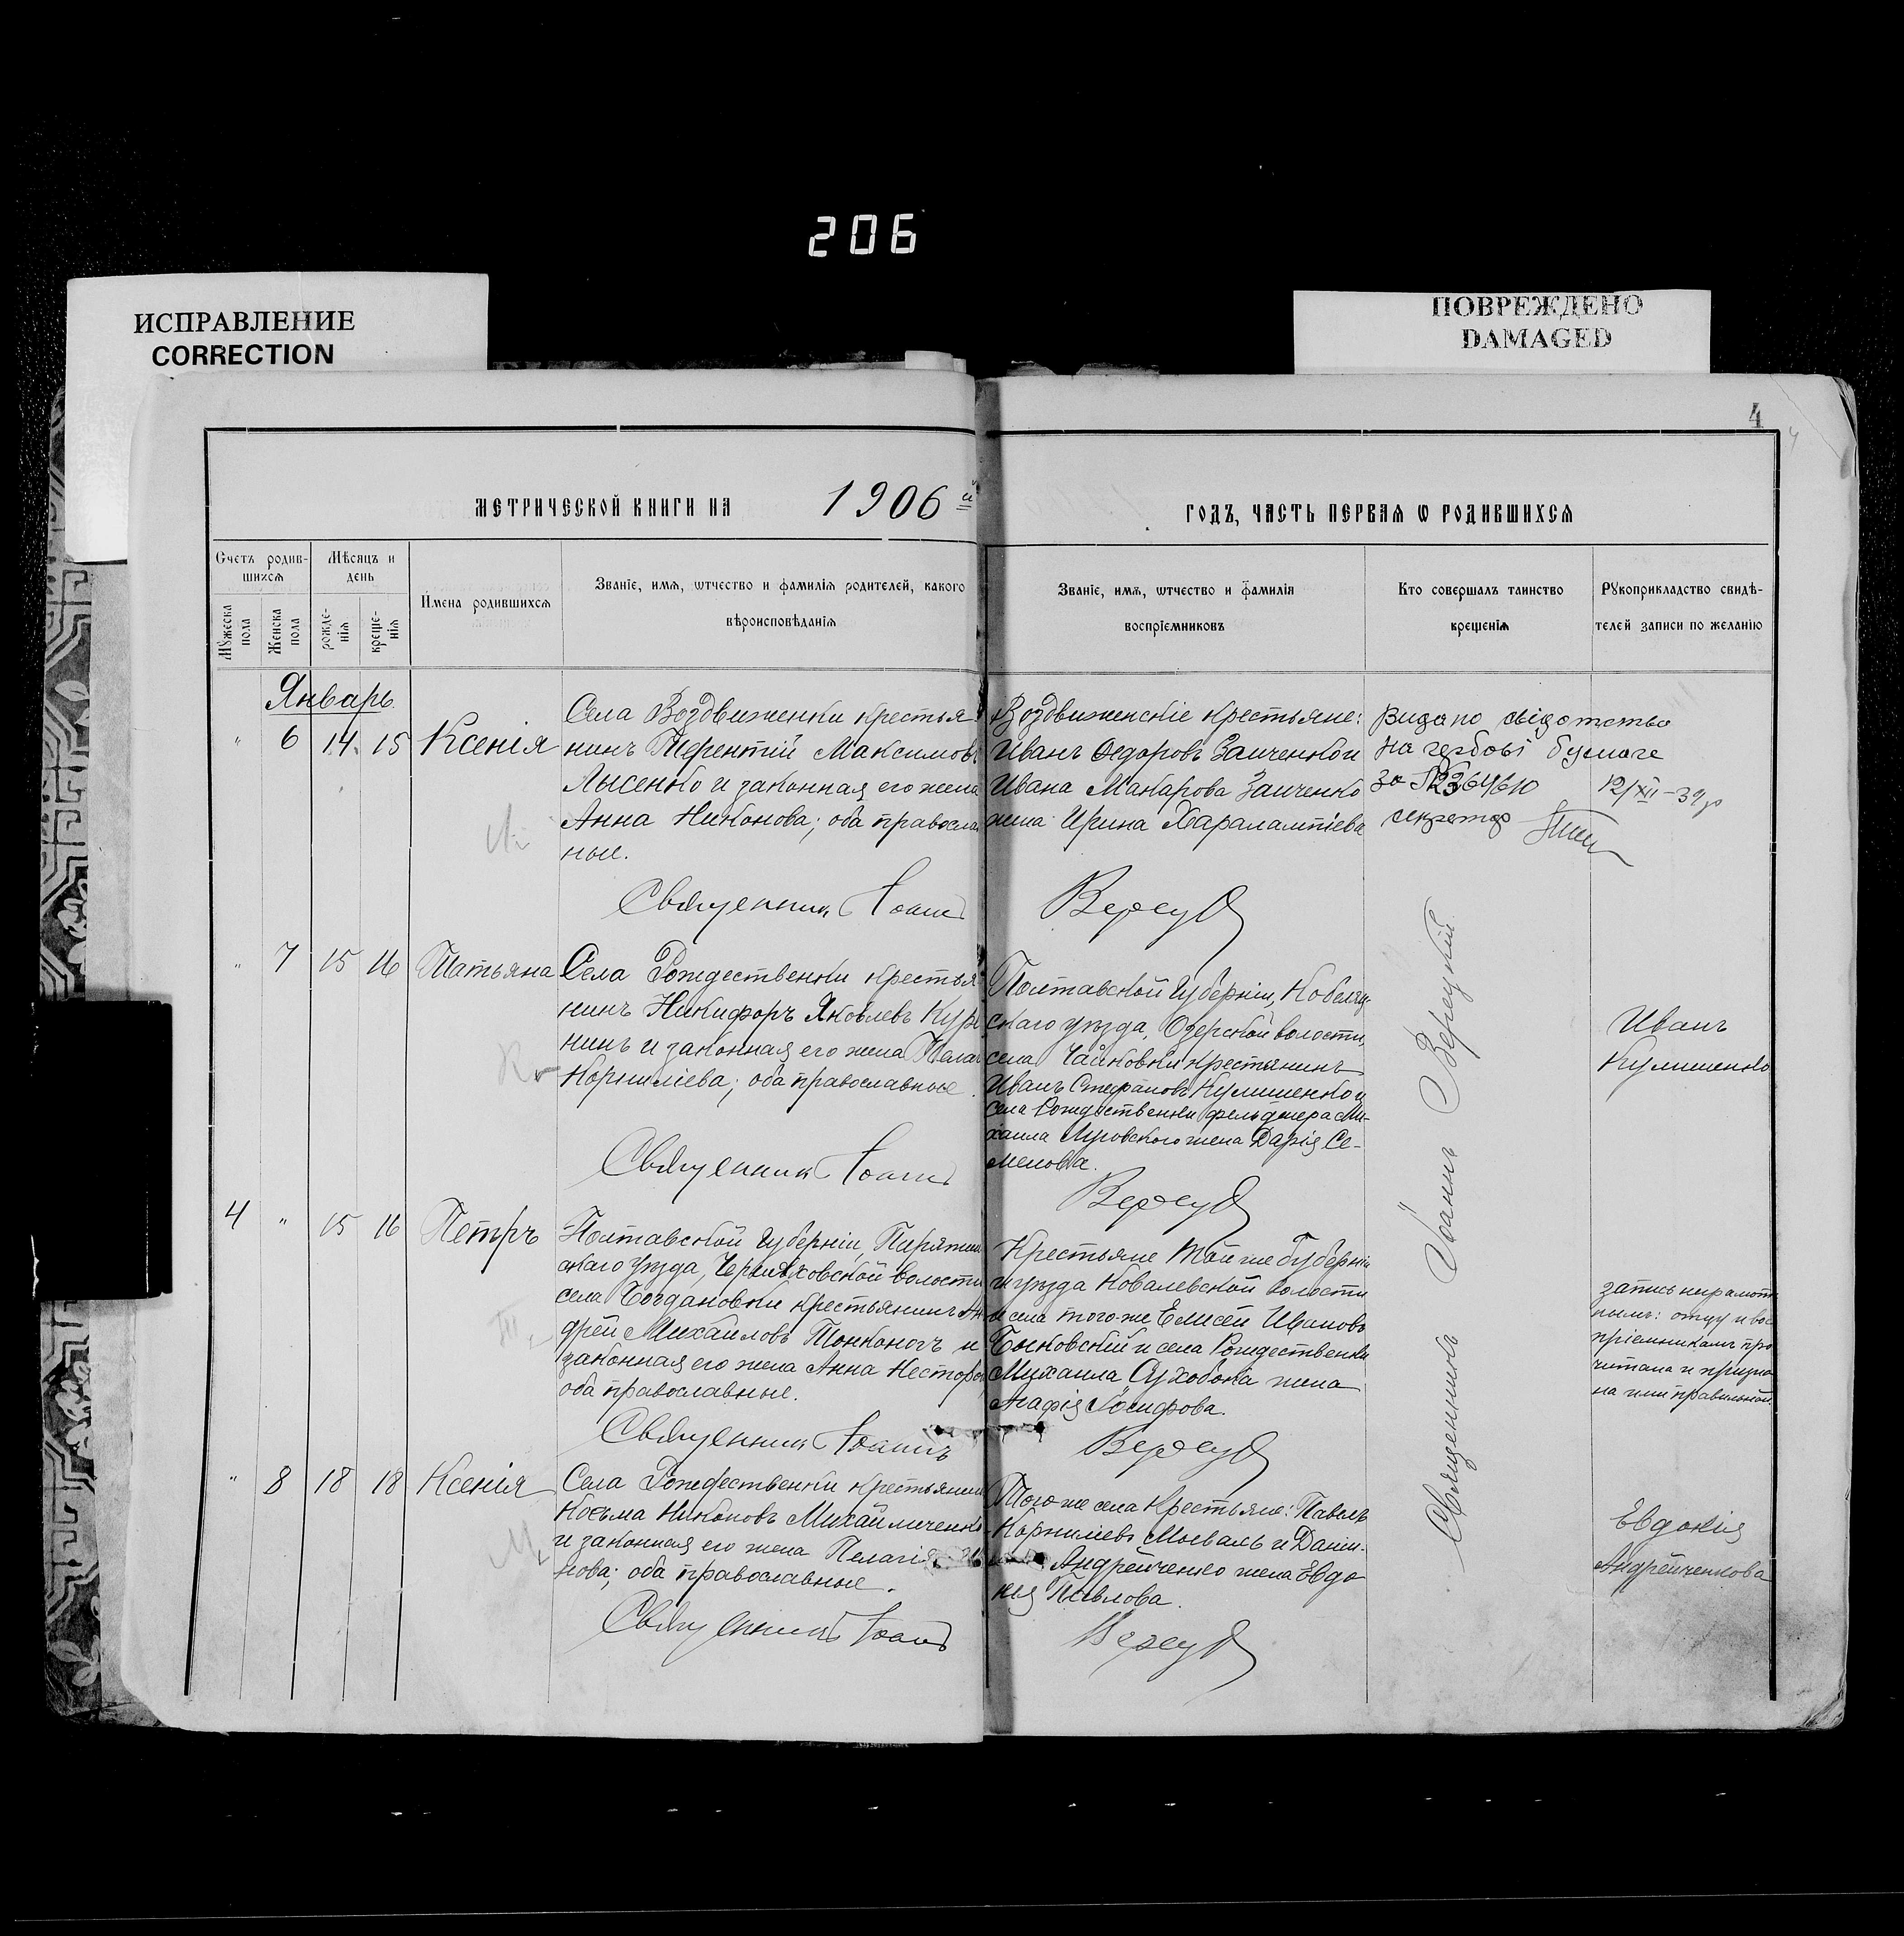 206
ИСПРАВЛЕНИЕ
CORRECTION
ПОВРЕЖДЕНО
DAMAGED
4
МЕТРИЧЕСКОЙ КНИГИ НА 1906й
ГОДЪ, ЧАСТЬ ПЕРВАЯ Ѡ РОДИВШИХСЯ
Счетъ родив-
шихся
Мужеска
пола
Женска
пола
Мѣсяцъ и
день
рожде-
нія
креще-
нія
Имена родившихся
Званіе, имя, ѡтчество и фамилія родителей, какого
вѣроисповѣданія
Званіе, имя, ѡтчество и фамилія
воспріемниковъ
Кто совершалъ таинство
крещенія
Рукоприкладство свидѣ-
телей записи по желанію
Январь
" 6 14. 15 Ксенія
Села Воздвиженки крестья-
нинъ Терентій Максимовъ
Лысенко и законная его жена
Анна Никонова; оба правосла
ные.
Священник Іоанн
Воздвиженскіе крестьяне:
Иванъ Ѳедоровъ Заиченко и
Ивана Макарова Заиченко
жена Ирина Харалампіева
Вересуц
Видано свідотство
на гербові бумаге
за №
12/XII-39р
секретар
" 7 15 16 Татьяна
Села Рождественки крестья
нинъ Никифоръ Яковлевъ Кур
нинъ и законная его жена Пелаг
Корниліева; оба православные.
Священник Іоанн
Полтавской губерніи, Кобеляц
скаго уѣзда, Озерской волости,
села Чайковки крестьянинъ
Иванъ Стефановъ Кулишенко и
села Рождественки фельдшера Ми-
хаила Луговского жена Дарія Се-
менова.
Иванъ
Кулишенко
4 " 15 16 Петръ
Полтавской губерніи, Пирятин
скаго уѣзда, Черняховской волости
села Богдановки крестьянинъ Ан
дрей Михайловъ Тонконогъ и
законная его жена Анна Несторов
оба православные.
Священник Іоаннъ
Крестьяне той же губерніи
и уѣзда Ковалевской волости
и села того-же Елисей Ивановъ
и села Рождественки
Михаила Сухобока жена
Агафія Іосифова.
запись неграмот
нымъ: отцу и вос
пріемникамъ про
читана и призна
на ими правильной.
" 8 18 18 Ксенія
Села Рождественки крестьянин
Косьма Никоновъ Михайличенко
и законная его жена Пелагія
нова; оба православные.
Священникъ Іоанн
Того-же села крестьяне: Павелъ
Корниліевъ и Дани-
Андрейченко жена Евдо
кія Павлова.
Евдокія
Андрейченкова
Священникъ Іоаннъ